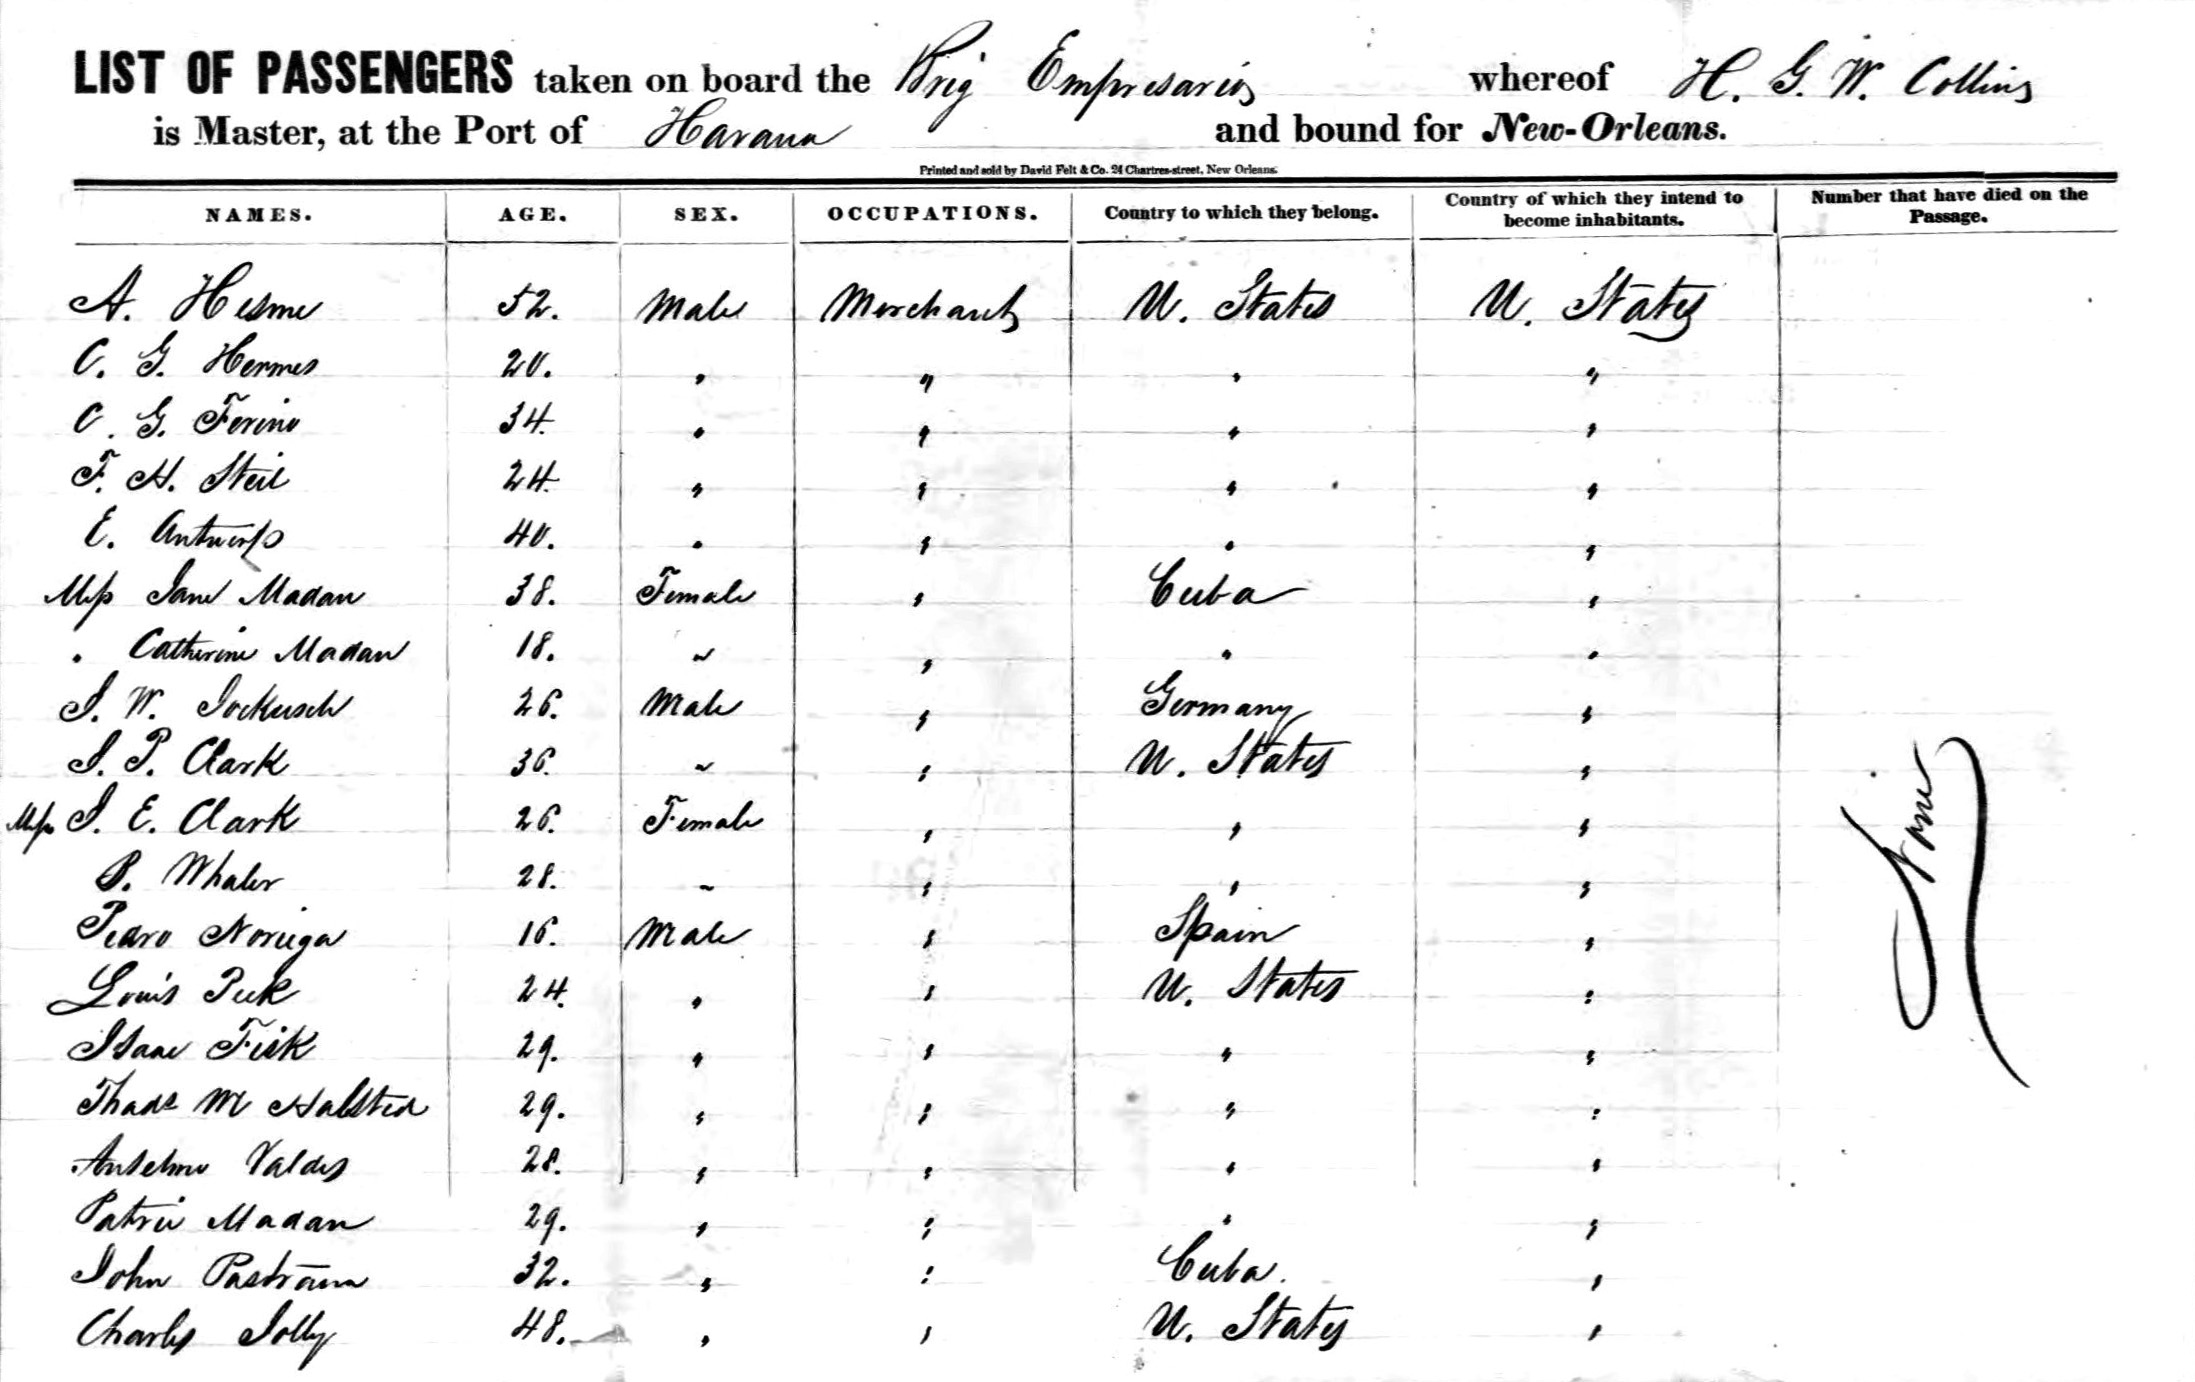 LIST OF PASSENGERS taken on board the Brig Empresario whereof H. G. W. Collins
is Master, at the Port of Havana and bound for New-Orleans.
Printed and sold by David Felt & Co. 24 Chartres-street, New Orleans.
NAMES. AGE. SEX. OCCUPATIONS. Country to which they belong. Country of which they intend to become inhabitants. Number that have died on the Passage.
A. Hesme 52. Male Merchants U. States U. States
C. G. Hermes 20. " " " "
C. G. Ferino 34. " " " "
F. H. Steil 24. " " " "
E. Antwerp 40. " " " "
Miss Jane Madan 38. Female " Cuba "
" Catherine Madan 18. " " " "
J. W. Jockusch 26. Male " Germany "
J. P. Clark 36. " " U. States "
Miss J. E. Clark 26. Female " " "
P. Whaler 28. " " " "
Pedro Noriega 16. Male " Spain "
Louis Peek 24. " " U. States "
Isaac Fisk 29. " " " "
Thads M Halsted 29. " " " "
Anselmo Valdes 28. " " " "
Patric Madan 29. " " " "
John Pastrana 32. " " Cuba. "
Charles Jolly 48. " " U. States "
None